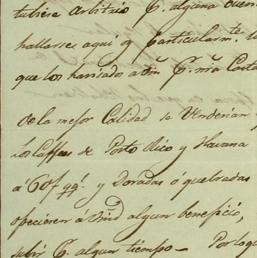 tubiese arbitrio P. alguna buen
hallarse aqui y particularmte.
que los havisado a Vm P. mia Carta
de la mejor Calidad se Venderian
Los Caffees de Porto Rico y Havana
a 60f y Doradas ó quebradas
opeciesen a Vmd algun beneficio,
subir P. algun tiempo — Por lo qe